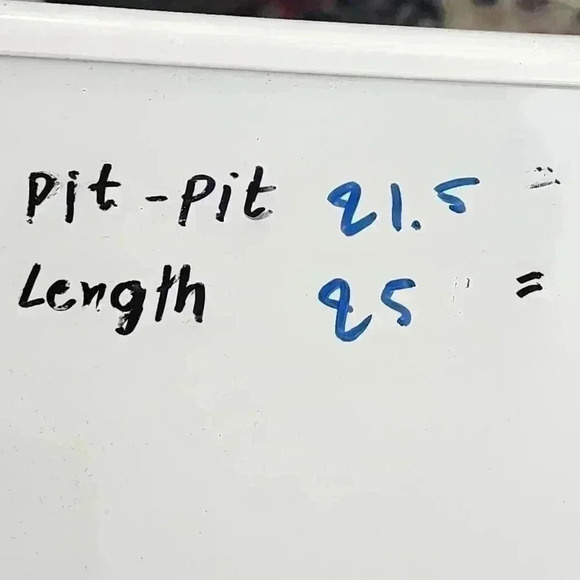 Pit-Pit 21.5 =
Length 25 " =